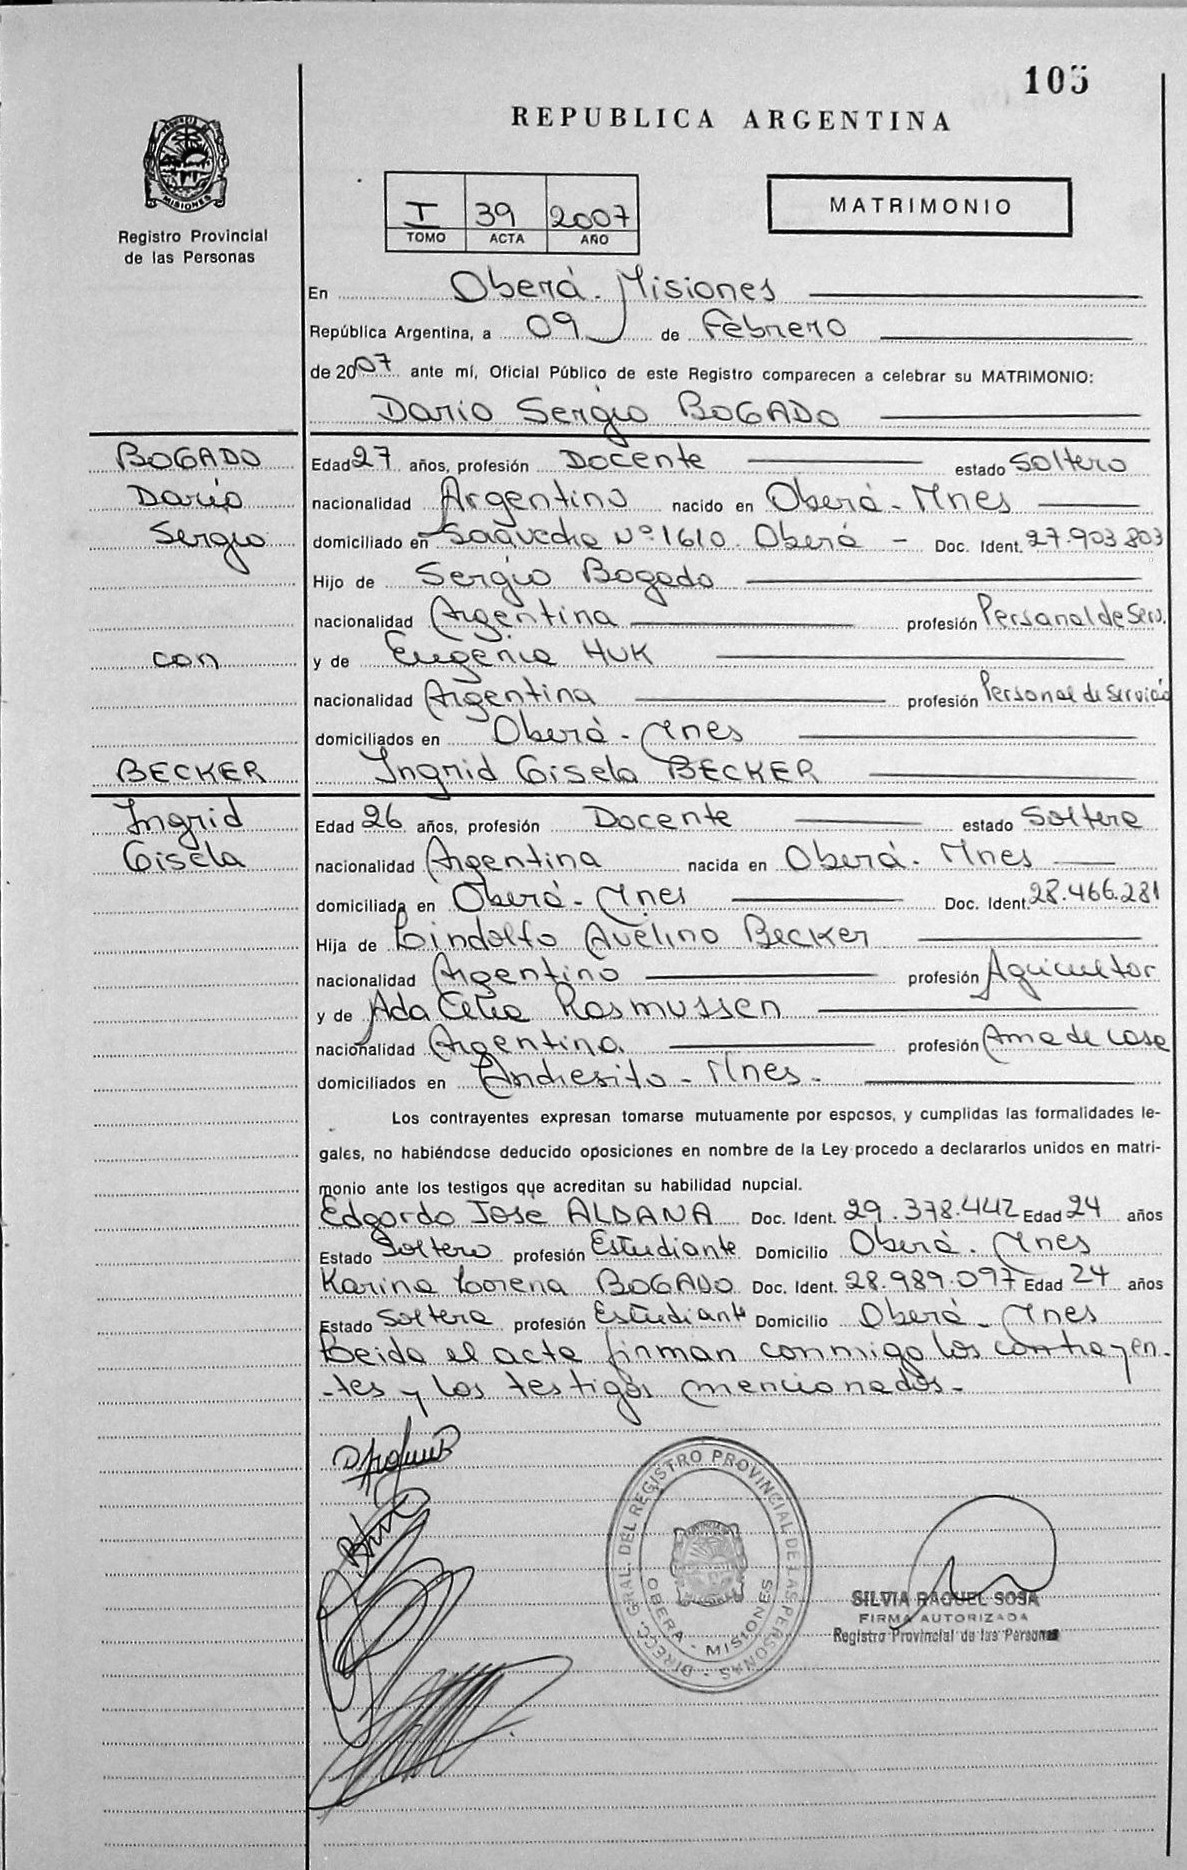 105
REPUBLICA ARGENTINA
MISIONES
Registro Provincial
de las Personas
I 39 2007
TOMO ACTA AÑO
MATRIMONIO
En Oberá - Misiones
República Argentina, a 09 de Febrero
de 2007 ante mí, Oficial Público de este Registro comparecen a celebrar su MATRIMONIO:
Dario Sergio BOGADO
BOGADO
Dario
Sergio
con
BECKER
Ingrid
Gisela
Edad 27 años, profesión Docente estado Soltero
nacionalidad Argentino nacido en Oberá - Mnes
domiciliado en Saavedra Nº 1610. Oberá - Doc. Ident. 27.903.803
Hijo de Sergio Bogado
nacionalidad Argentina profesión Personal de Serv.
y de Eugenia HUK
nacionalidad Argentina profesión Personal de Servicio
domiciliados en Oberá - Mnes
Ingrid Gisela BECKER
Edad 26 años, profesión Docente estado Soltera
nacionalidad Argentina nacida en Oberá - Mnes
domiciliada en Oberá - Mnes Doc. Ident. 28.466.281
Hija de Lindolfo Avelino Becker
nacionalidad Argentino profesión Agricultor
y de Ada Celia Rasmussen
nacionalidad Argentina. profesión Ama de casa
domiciliados en Andresito - Mnes -
Los contrayentes expresan tomarse mutuamente por esposos, y cumplidas las formalidades le-
gales, no habiéndose deducido oposiciones en nombre de la Ley procedo a declararlos unidos en matri-
monio ante los testigos que acreditan su habilidad nupcial.
Edgardo José ALDANA Doc. Ident. 29.378.442 Edad 24 años
Estado Soltero profesión Estudiante Domicilio Oberá - Mnes
Karina Lorena BOGADO Doc. Ident. 28.989.097 Edad 24 años
Estado Soltera profesión Estudiante Domicilio Oberá - Mnes
Leida el acta firman conmigo los contrayen-
-tes y los testigos mencionados -
DIRECC. GRAL. DEL REGISTRO PROVINCIAL DE LAS PERSONAS -
OBERA - MISIONES
SILVIA RAQUEL SOSA
FIRMA AUTORIZADA
Registro Provincial de las Personas